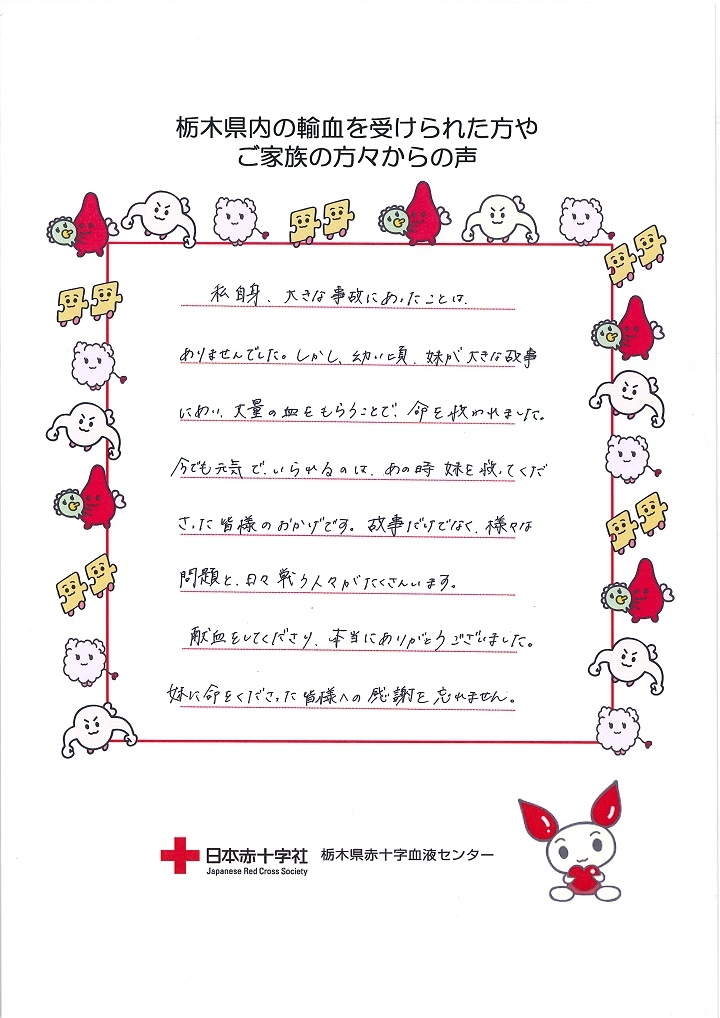 栃木県内の輸血を受けられた方や
ご家族の方々からの声
私自身、大きな事故にあったことは、
ありませんでした。しかし、幼い頃、妹が大きな故事
にあい、大量の血をもらうことで、命を救われました。
今でも元気で、いられるのは、あの時 妹を救ってくだ
さった皆様のおかげです。故事だけでなく、様々な
問題と、日々戦う人々がたくさんいます。
献血をしてくださり、本当にありがとうございました。
妹に命をくださった皆様への感謝を忘れません。
日本赤十字社 栃木県赤十字血液センター
Japanese Red Cross Society